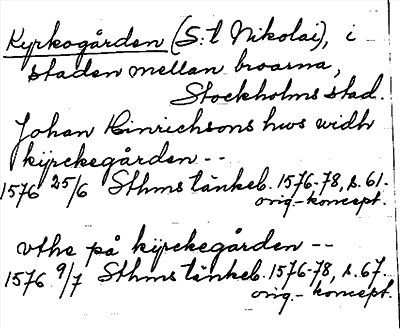 Kyrkogården (S:t Nikolai), i
staden mellan broarna,
Stockholms stad.
Johan Hinrichsons hws widh
kyrckegården --
1576 25/6 Sthms tänkeb. 1576-78, s. 61.
orig.-koncept.
vthe på kyrckegården --
1576 9/7 Sthms tänkeb. 1576-78, s. 67.
orig.- koncept.